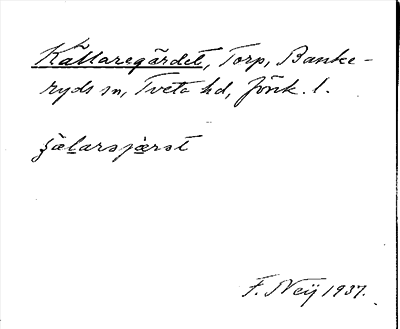 Källaregärdet, Torp, Banke-
ryds sn, Tveta hd, Jönk. l.
ʒælarsjærst
F. Neij 1937.